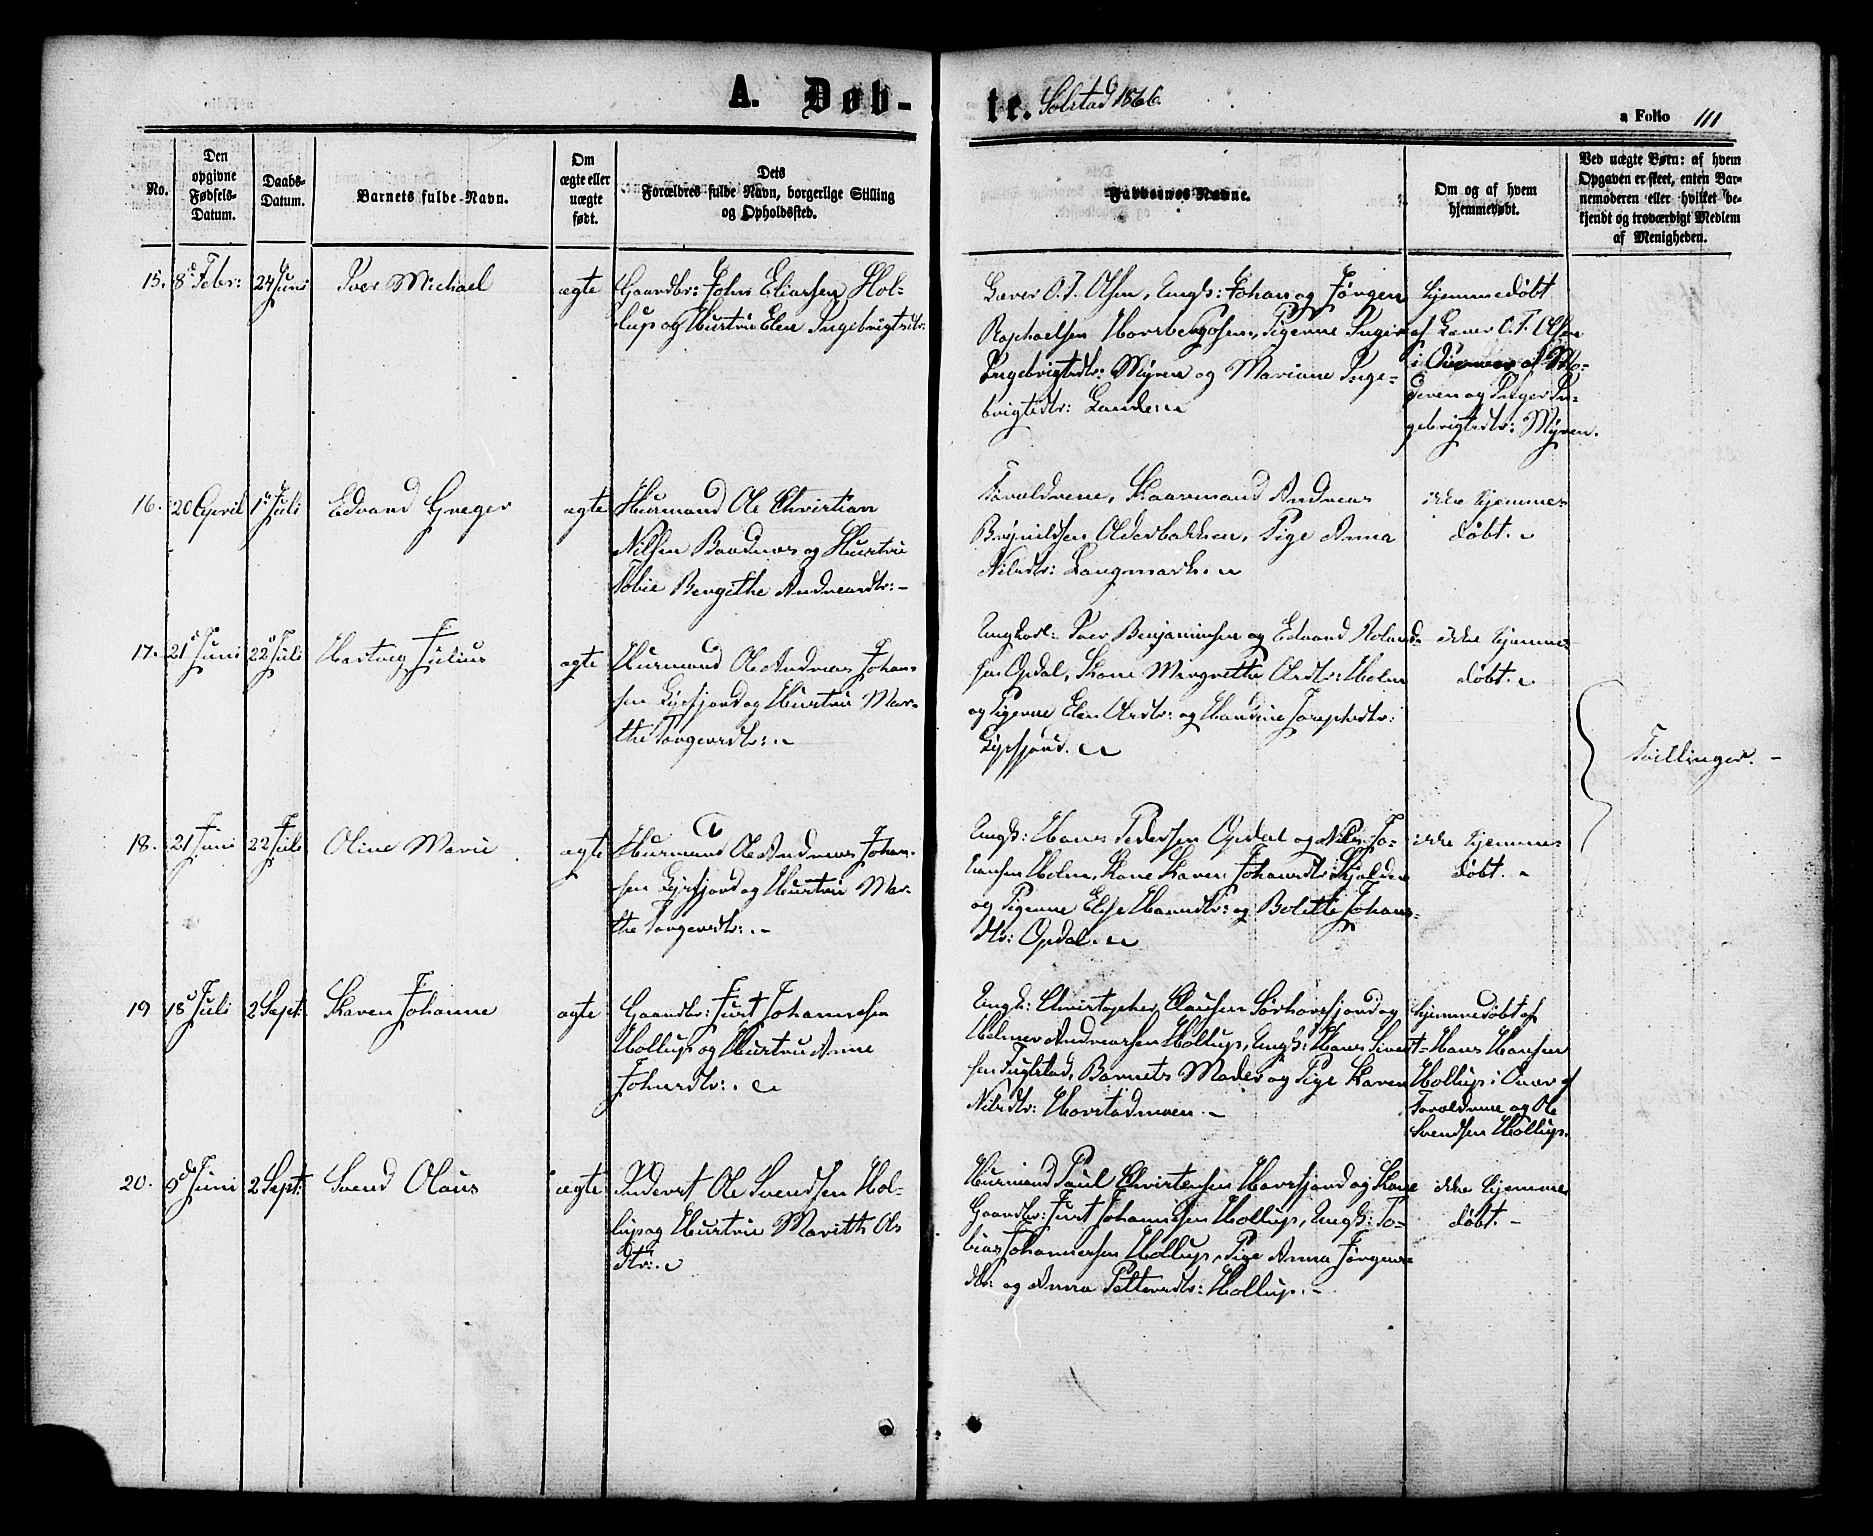 A. Døb-
te. Solstad 1866.
a Folio 111
No.
Den
opgivne
Fødsels-
Datum.
Daabs-
Datum.
Barnets fulde Navn.
Om
ægte eller
uægte
født.
Dets
Forældres fulde Navn, borgerlige Stilling
og Opholdssted.
Faddernes Navne.
Om og af hvem
hjemmedøbt.
Ved uægte Børn: af hvem
Opgaven er skeet, enten Bar-
nemoderen eller hvilket be-
kjendt og troværdigt Medlem
af Menigheden.
15. 8de Febr: 24 Juni Iver Michael ægte
Gaardbr: John Eliassen Hol-
lup og Hustru Elen Ingebrigtsdtr:
Lærer O. T. Olsen, Ungk: Johan og Jørgen
Raphaelsen, Pigerne Inger
Ingebrigtsdtr: Myren og Mariane Inge-
brigtsdtr:
Hjemmedøbt
af Lærer O. T. Olsen
i Overvær af Mo-
deren og Inger In-
gebrigtsdtr: Myren.
16. 20 April 1ste Juli Edvard Greger ægte
Huusmand Ole Christian
Nilsen Baadnes og Hustru
Tobie Bergithe Andreasdtr: -
Forældrene, Kaarmand Andreas
Brynildsen Olderbakken, Pige Anna
Nilsdtr: Langmark.
ikke hjemme-
døbt.
17. 21de Juni 22de Juli Hartvig Julius ægte
Huusmand Ole Andreas Johan-
sen Gjersfjord og Hustru Mar-
the Torgersdtr:
Ungkarl: Iver Benjaminsen og Edvard Roland-
sen Opdal, Kone Mergrethe Olsdtr: Holm
og Pigerne Elen Olsdtr: og Handine Josephsdtr:
Gjersfjord.
ikke hjemme-
døbt.
Tvillinger. -
18. 21 Juni 22 Juli Oline Marie ægte
Huusmand Ole Andreas Johan-
sen Gjersfjord og Hustru Mar-
the Torgersdtr: -
Ungk: Hans Pedersen Opdal og Nils Jo-
hansen Holm, Kone Karen Johansdtr:
og Pigerne Else Hansdtr: og Bolette Johans-
dtr: Opdal.
ikke hjemme-
døbt.
19 18de Juli 2 Sept: Karen Johanne ægte
Gaardbr: Just Johannesen
Hollup og Hustru Anne
Johnsdtr:
Ungk: Christopher Clausen Sørhorsfjord og
Helmer Andreassen Hollup, Ungk: Hans Sivert-
sen Fuglstad, Barnets Moder og Pige Karen
Nilsdtr: Horstadmoen. -
hjemmedøbt af
Hans Hansen
Hollup i Overv. af
Forældrene og Ole
Svendsen Hollup.
20. 9de Juni 2 Sept: Svend Olaus ægte
Inderst Ole Svendsen Hol-
lup og Hustru Marith Ols
dtr:
Huusmand Paul Christensen Horsfjord og Kone
Gaardbr: Just Johannesen Hollup, Ungk: To-
bias Johannesen Hollup, Pige Anna Jørgens-
dtr: og Anna Pettersdtr: Hollup. -
ikke hjemme
døbt. -